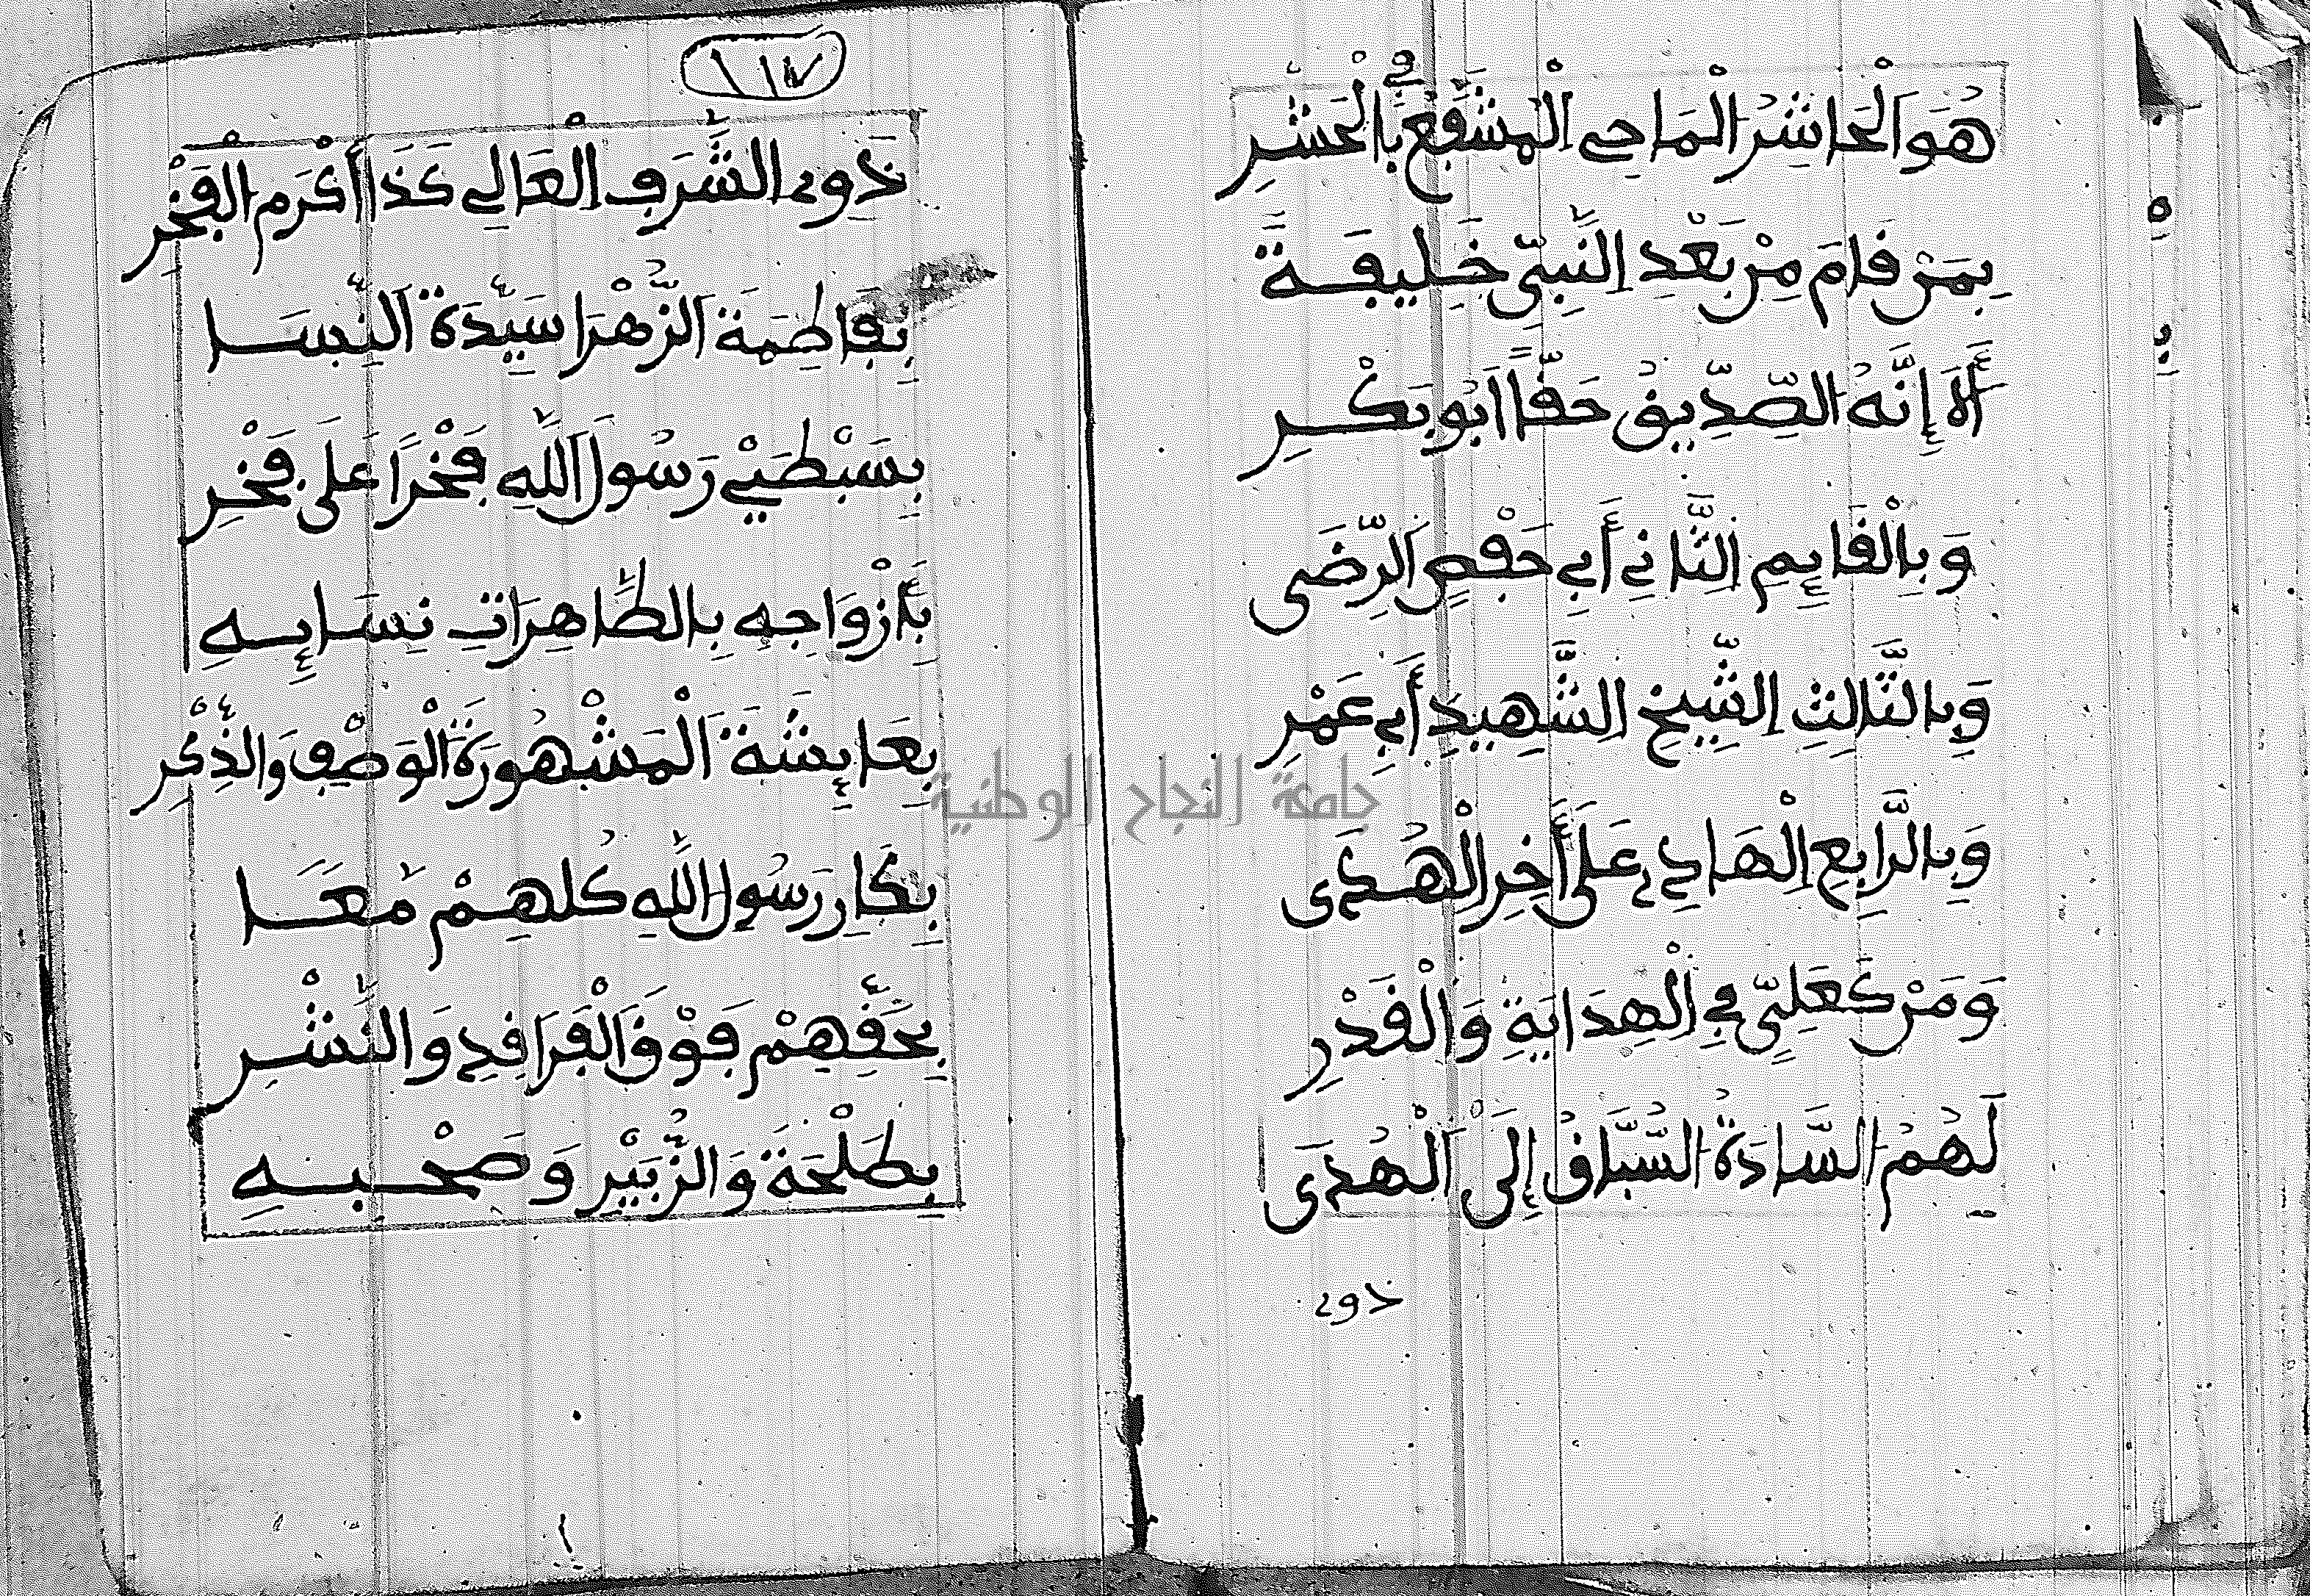 هُوَ الْحَاشِرُ الْمَاحِي الْمُشَفَّعُ فِي الْحَشْرِ
بِمَنْ قَامَ مِنْ بَعْدِ النَّبِيِّ خَلِيفَةً
أَلَا إِنَّهُ الصِّدِّيقُ حَقًّا أَبُو بَكْرِ
وَبِالْقَائِمِ الثَّانِي أَبِي حَفْصٍ الرِّضَى
وَبِالثَّالِثِ الشَّيْخِ الشَّهِيدِ أَبِي عَمْرِ
وَبِالرَّابِعِ الْهَادِي عَلَى أَخِرِ الْهُدَى
وَمَنْ كَعَلِيٍّ فِي الْهِدَايَةِ وَالْقَدْرِ
لَهُمْ السَّادَةُ السُّبَّاقُ إِلَى الْهُدَى
ذوي
١١٧
ذَوِي الشَّرَفِ الْعَالِي كَذَا أَكْرَمِ الْفَخْرِ
بِفَاطِمَةَ الزَّهْرَا سَيِّدَةُ النِّسَا
بِسِبْطَيْ رَسُولِ اللَّهِ فَخْرًا عَلَى فَخْرِ
بِأَزْوَاجِهِ بِالطَّاهِرَاتِ نِسَائِهِ
بِعَائِشَةَ الْمَشْهُورَةَ الْوَصْفِ وَالذِّكْرِ
رَسُولِ اللَّهِ كُلِّهِمْ مَعَا
بِحَقِّهِمْ فَوْقَ الْفَرَاقِدِ وَالنَّشْرِ
بِطَلْحَةَ وَالزُّبَيْرِ وَصَحْبِهِ
جامعة النجاح الوطنية